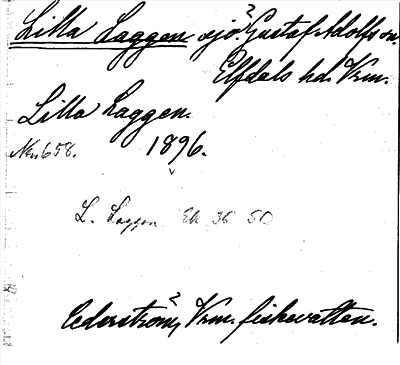 Lilla Laggen, sjö. Gustaf Adolfs sn.
Elfdals hd. Vrm.
Lilla Laggen.
Nr. 658. 1896.
L. Laggen Ek 36 50
Cederström, Vrm. fiskevatten.